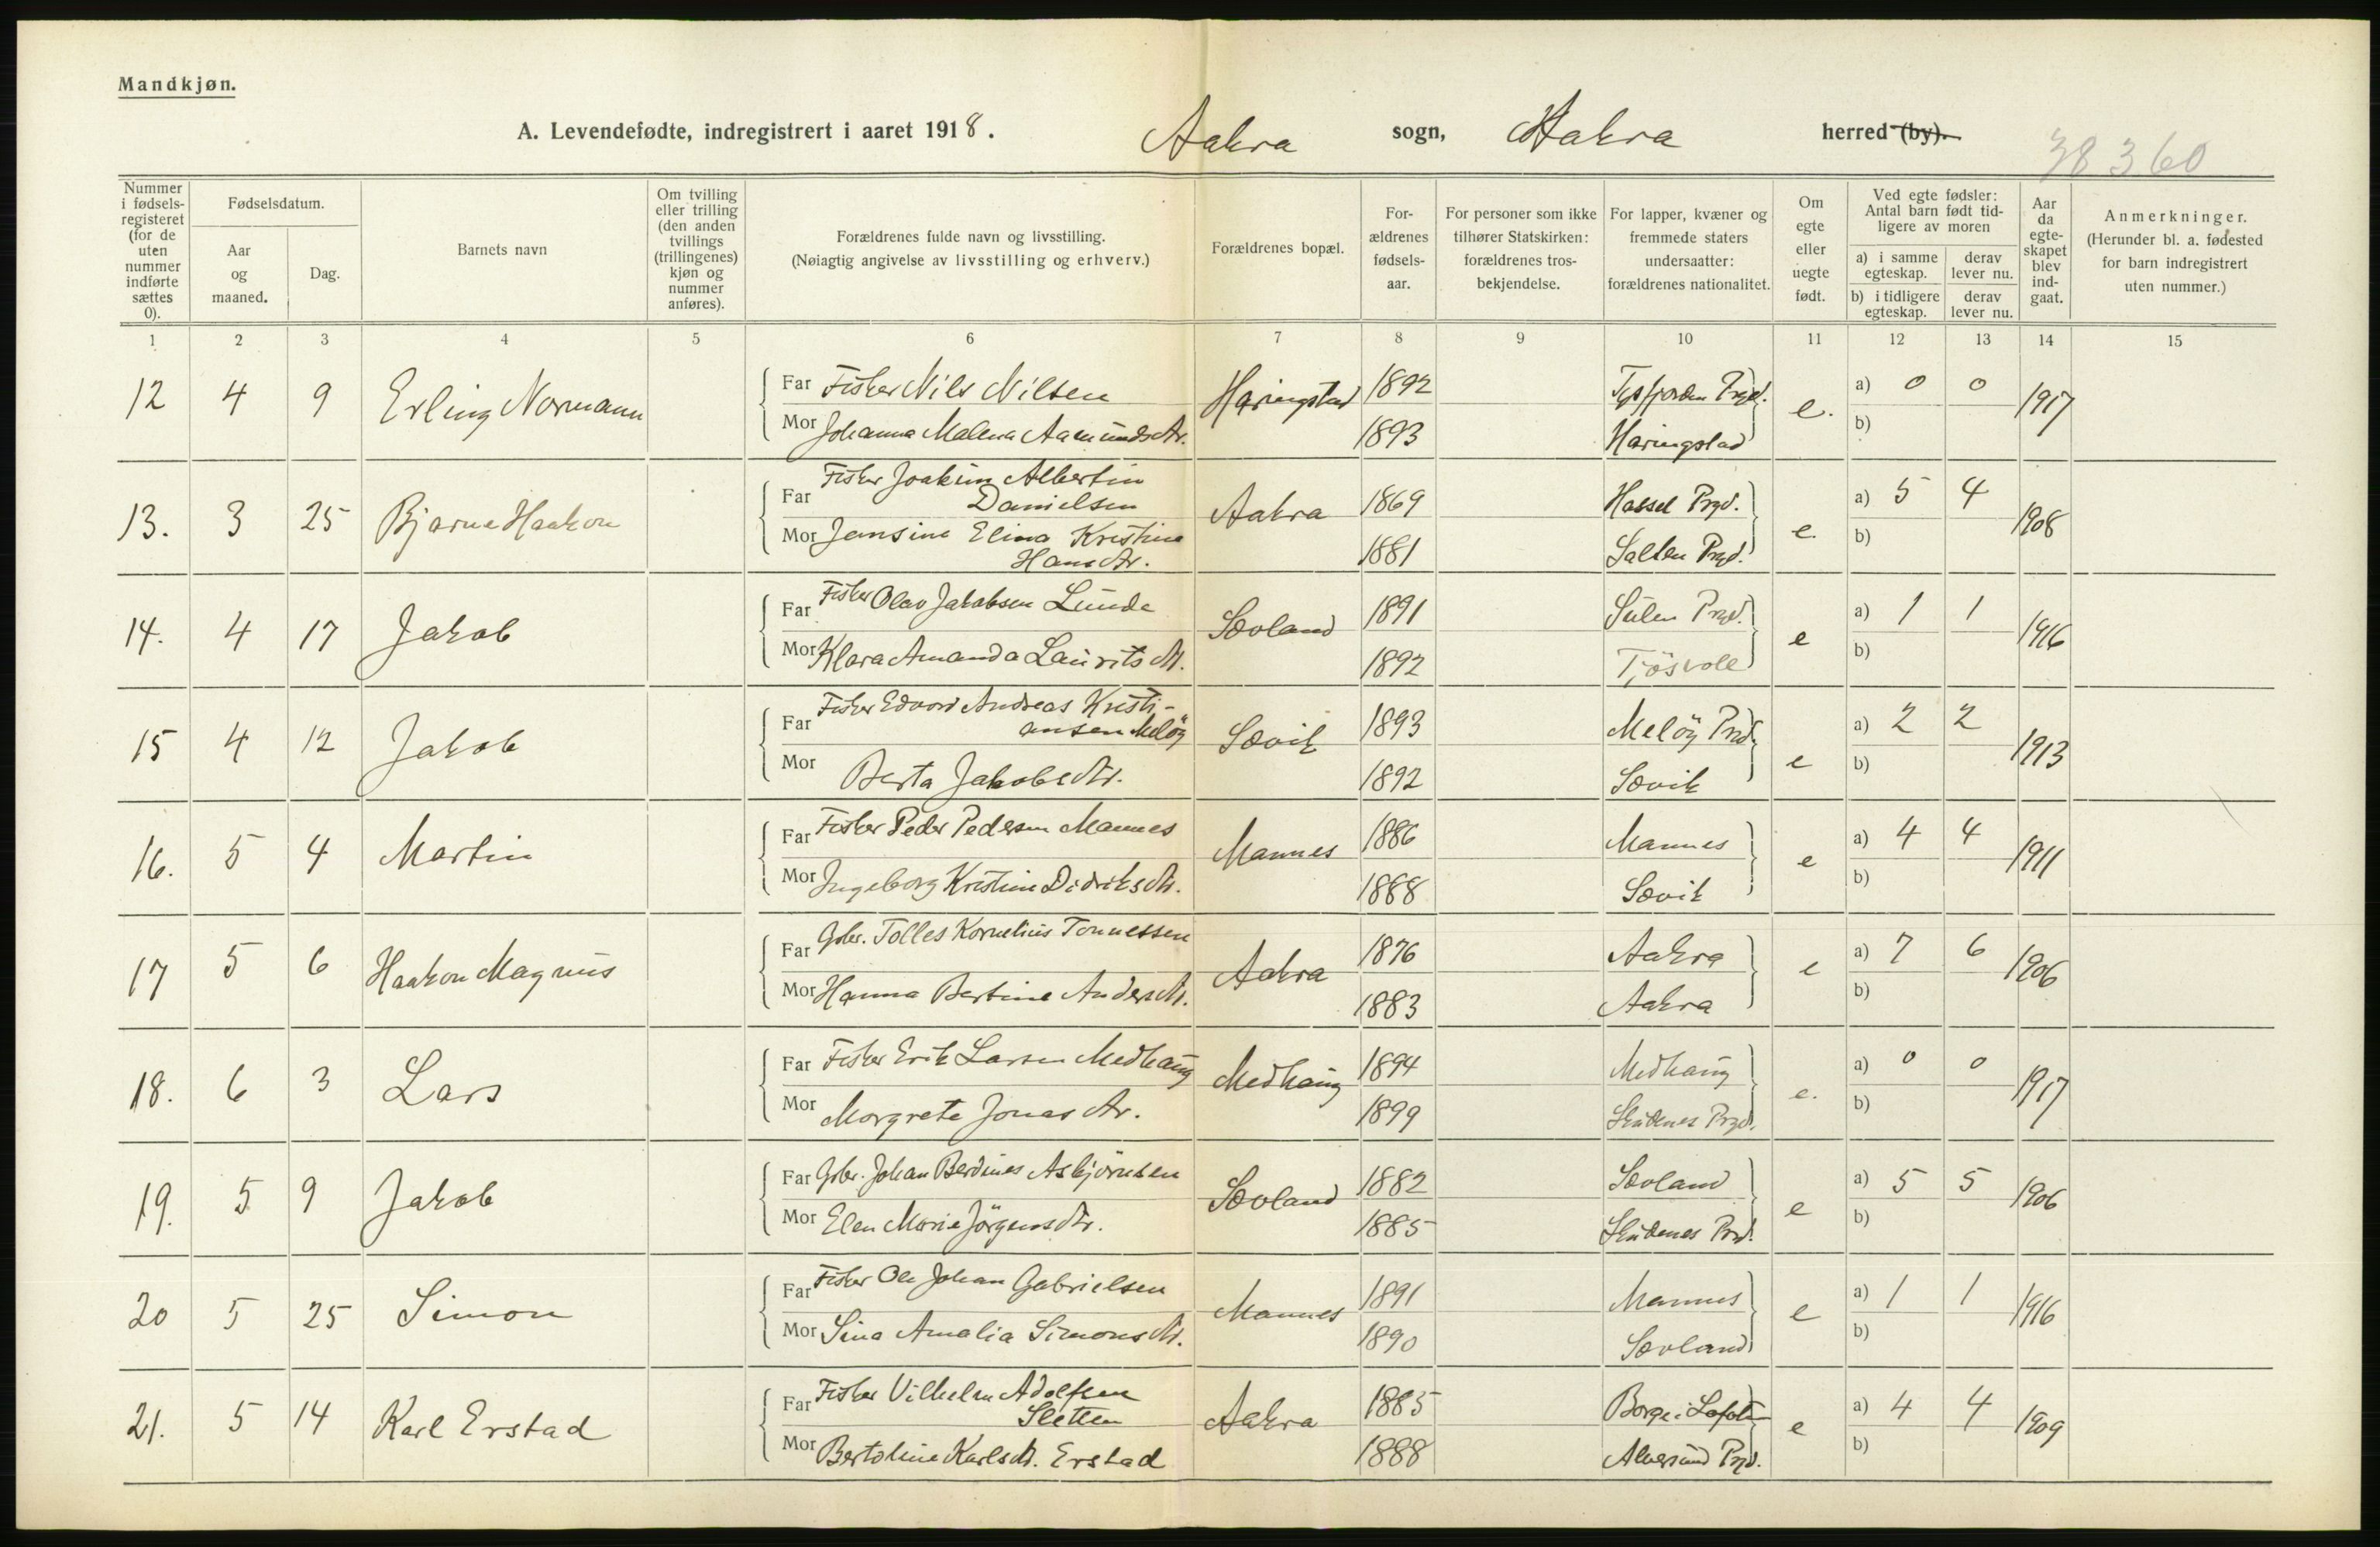 Mandkjøn.
A. Levendefødte, indregistrert i aaret 1918. Aakra sogn, Aakra herred (by).
38360
Nummer i fødselsregisteret (for de uten nummer indførte sættes 0).
Fødselsdatum.
Aar og maaned.
Dag.
Barnets navn
Om tvilling eller trilling (den anden tvillings (trillingenes) kjøn og nummer anføres).
Forældrenes fulde navn og livsstilling.
(Nøiagtig angivelse av livsstilling og erhverv.)
Forældrenes bopæl.
Forældrenes fødselsaar.
For personer som ikke tilhører Statskirken: forældrenes trosbekjendelse.
For lapper, kvæner og fremmede staters undersaatter: forældrenes nationalitet.
Om egte eller uegte født.
Ved egte fødsler: Antal barn født tidligere av moren
a) i samme egteskap.
derav lever nu.
b) i tidligere egteskap.
derav lever nu.
Aar da egteskapet blev indgaat.
Anmerkninger.
(Herunder bl. a. fødested for barn indregistrert uten nummer.)
1 2 3 4 5 6 7 8 9 10 11 12 13 14 15
12 4 9 Erling Normann Far Fisker Nils Nilsen Haringstad 1892 Prgd. e. a) 0 0 1917
Mor Johanna Malena Aamundsdtr. 1893 Haringstad b)
13. 3 25 Bjarne Haakon Far Fisker Joakim Albertin Danielsen Aakra 1869 Hassel Prgd. e. a) 5 4 1908
Mor Jensine Elina Kristine Hansdtr. 1881 Salten Prgd. b)
14. 4 17 Jakob Far Fisker Olav Jakobsen Lunde Sævland 1891 Sulen Prgd. e a) 1 1 1916
Mor Klara Amanda Lauritsdtr. 1892 Tjösvoll b)
15 4 12 Jakob Far Fisker Edvard Andreas Kristiansen Melöy Sævik 1893 Melöy Prgd. e a) 2 2 1913
Mor Berta Jakobsdtr. 1892 Sævik b)
16. 5 4 Martin Far Fisker Peder Pedersen Mannes Mannes 1886 Mannes e a) 4 4 1911
Mor Ingeborg Kristine Didriksdtr. 1888 Sævik b)
17 5 6 Haakon Magnus Far Gbr. Tolles Kornelius Tonnessen Aakra 1876 Aakra e a) 7 6 1906
Mor Hanna Bertine Andersdtr. 1883 Aakra b)
18. 6 3 Lars Far Fisker Erik Larsen Medhaug Medhaug 1894 Medhaug e. a) 0 0 1917
Mor Margrete Jonasdtr. 1899 Skudenes Prgd. b)
19. 5 9 Jakob Far Gbr. Johan Berdines Asbjörnsen Sævland 1882 Sævland e a) 5 5 1906
Mor Elen Marie Jörgensdtr. 1885 Skudenes Prgd. b)
20 5 25 Simon Far Fisker Ole Johan Gabrielsen Mannes 1891 Mannes e a) 1 1 1916
Mor Sina Amalia Simonsdtr. 1890 Sævland b)
21. 5 14 Karl Erstad Far Fisker Vilhelm Adolfsen Sletten Aakra 1885 Borge i Lofoten e a) 4 4 1909
Mor Bertoline Karlsdt. Erstad 1888 Alversund Prgd. b)